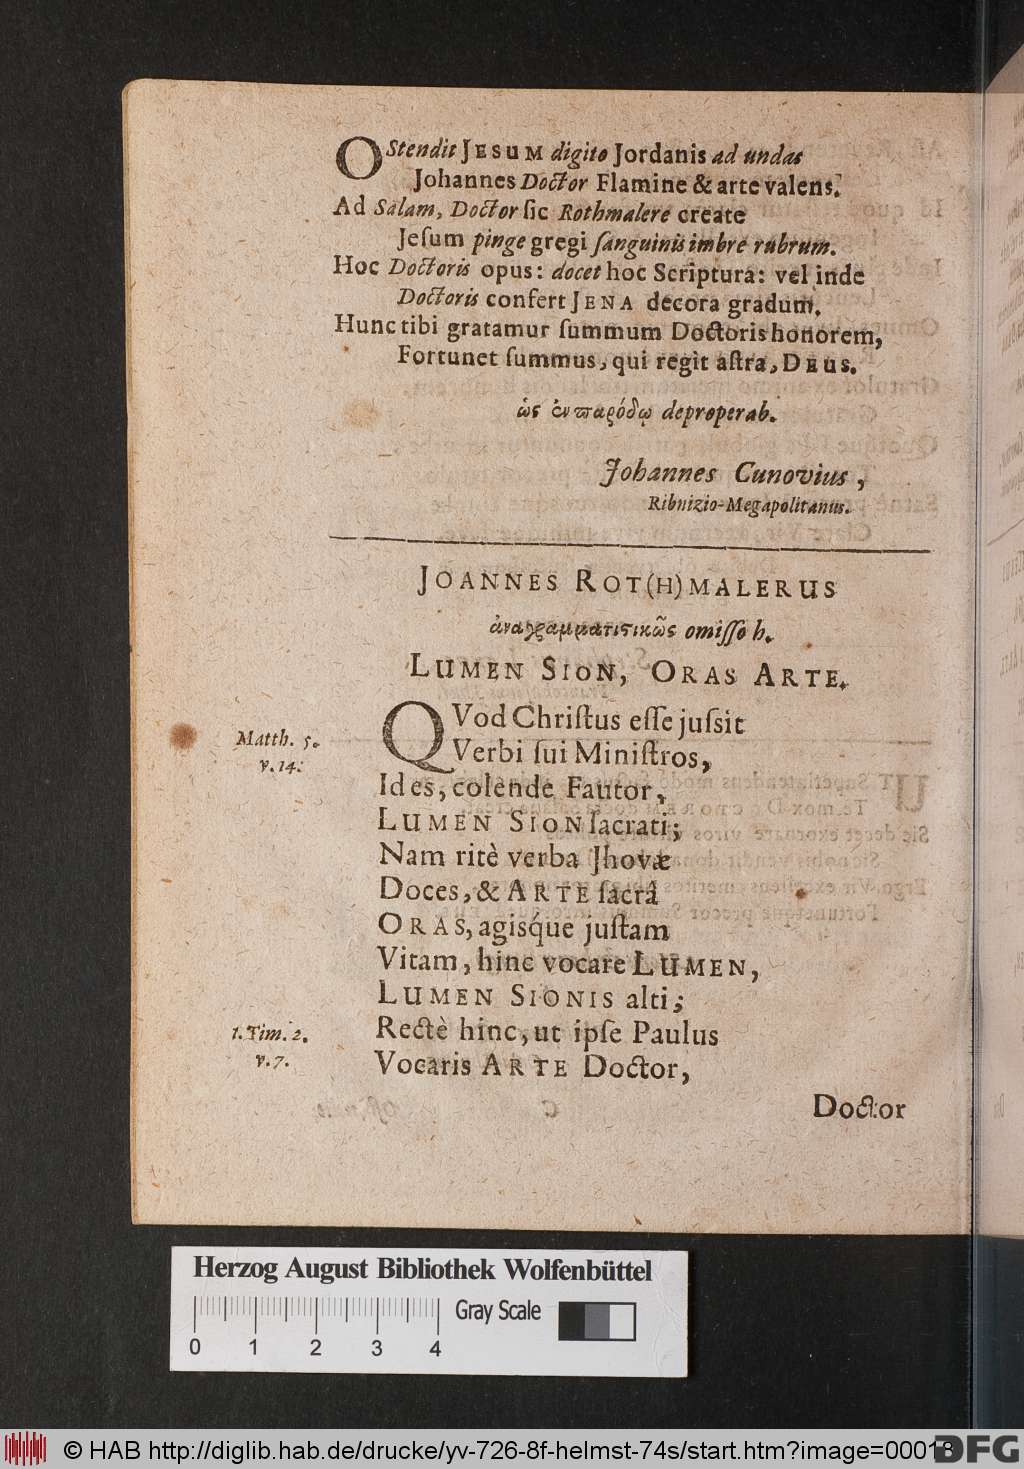 OStendit JESUM digito Jordanis ad undas
Johannes Doctor Flamine & arte valens.
Ad Salam, Doctor ſic Rothmalere create
Jeſum pinge gregi ſanguinis imbre rubrum.
Hoc Doctoris opus: docet hoc Scriptura: vel inde
Doctoris confert JENA decora gradum.
Hunc tibi gratamur ſummum Doctoris honorem,
Fortunet ſummus, qui regit aſtra, DEUS.
ὡς ἐν παρόδῳ deproperab.
Johannes Cunovius,
Ribnizio-Megapolitanus.
JOANNES ROT(H)MALERUS
ἀναγραμματιστικῶς omiſſo h.
LUMEN SION, ORAS ARTE.
QVod Chriſtus eſſe juſsit
Matth. 5.
v. 14.
Verbi ſui Miniſtros,
Id es, colende Fautor,
LUMEN SION ſacrati;
Nam ritè verba Jhovæ
Doces, & ARTE ſacrâ
ORAS, agisq́ue juſtam
Vitam, hinc vocare LUMEN,
LUMEN SIONIS alti;
1. Tim. 2.
v. 7.
Rectè hinc, ut ipſe Paulus
Vocaris ARTE Doctor,
Doctor
Herzog August Bibliothek Wolfenbüttel
Gray Scale
0 1 2 3 4
© HAB http://diglib.hab.de/drucke/yv-726-8f-helmst-74s/start.htm?image=00018
DFG